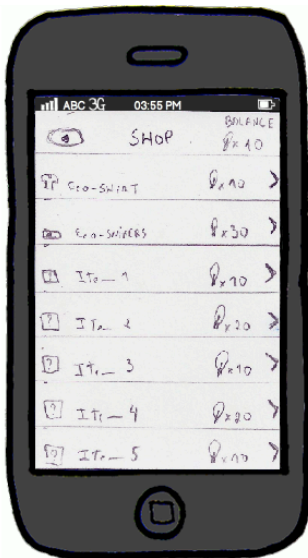 ABC 3G 03:55 PM
BALANCE
SHOP x10
Eco-SHIRT x10
Eco-SNIKERS x30
ITe_ 1 x10
ITe_ 2 x20
ITe_ 3 x10
ITe_ 4 x20
ITe_ 5 x10